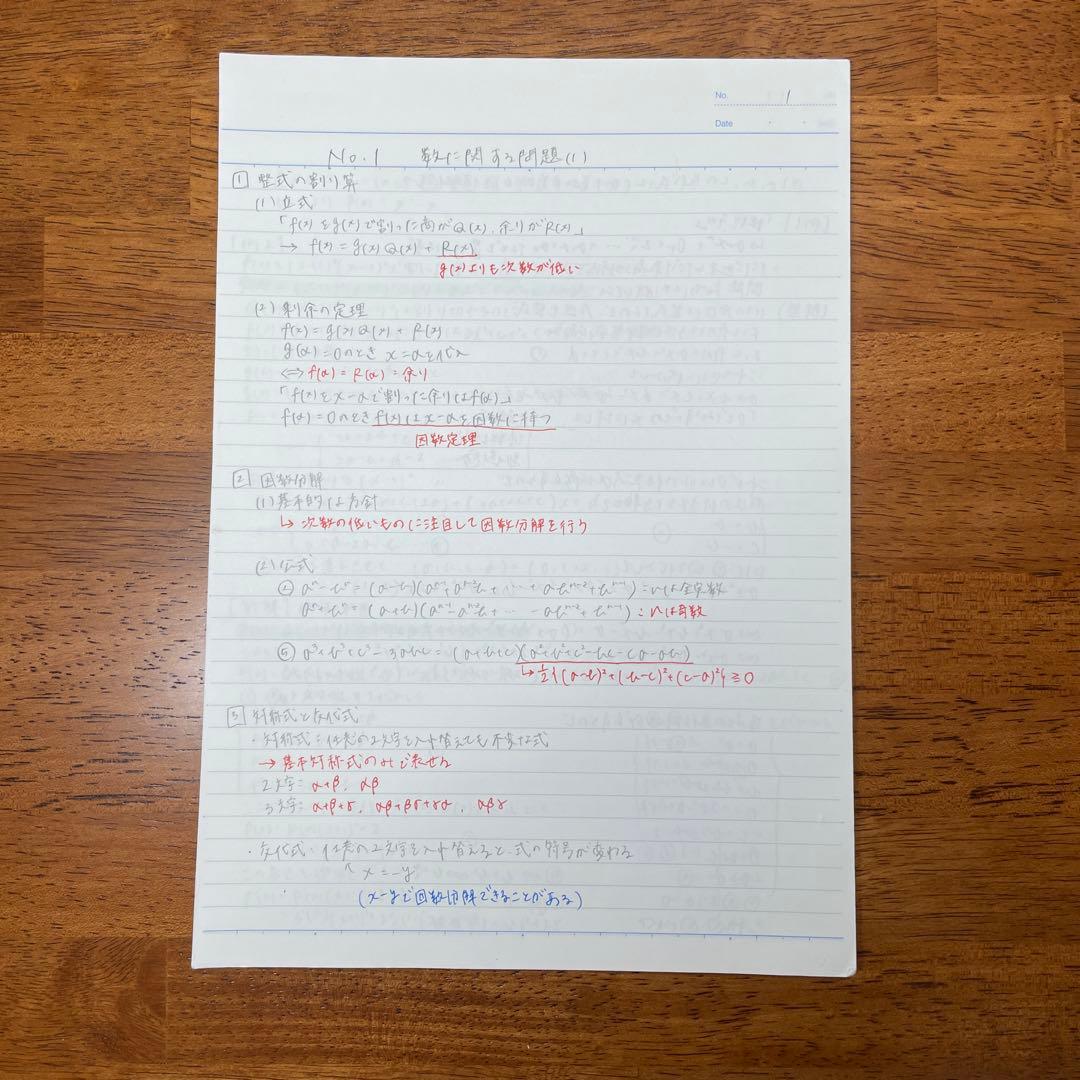 No. 1
Date
No.1 数に関する問題(1)
1 整式の割り算
(1) 立式
「f(x)をg(x)で割った商がQ(x), 余りがR(x)」
→ f(x) = g(x)Q(x) + R(x)
g(x)よりも次数が低い
(2) 剰余の定理
f(x) = g(x)Q(x) + R(x)
g(α) = 0のとき x = αを代入
⇔ f(α) = R(α) = 余り
「f(x)をx-αで割った余りはf(α)」
f(α) = 0のときf(x)はx-αを因数に持つ
因数定理
2 因数分解
(1) 基本的な方針
↳ 次数の低いものに注目して因数分解を行う
(2) 公式
④ aⁿ-bⁿ = (a-b)(aⁿ⁻¹+aⁿ⁻²b+…+abⁿ⁻²+bⁿ⁻¹) : nは全実数
aⁿ+bⁿ = (a+b)(aⁿ⁻¹-aⁿ⁻²b+… -abⁿ⁻²+bⁿ⁻¹) : nは奇数
⑤ a³+b³+c³-3abc = (a+b+c)(a²+b²+c²-bc-ca-ab)
↳ ½{(a-b)²+(b-c)²+(c-a)²} ≧ 0
3 対称式と交代式
・対称式 : 任意の2文字を入れ替えても不変な式
→ 基本対称式のみで表せる
2文字 : α+β, αβ
3文字 : α+β+γ, αβ+βγ+γα, αβγ
・交代式 : 任意の2文字を入れ替えると式の符号が変わる
x = -y
(x-yで因数分解できることがある)